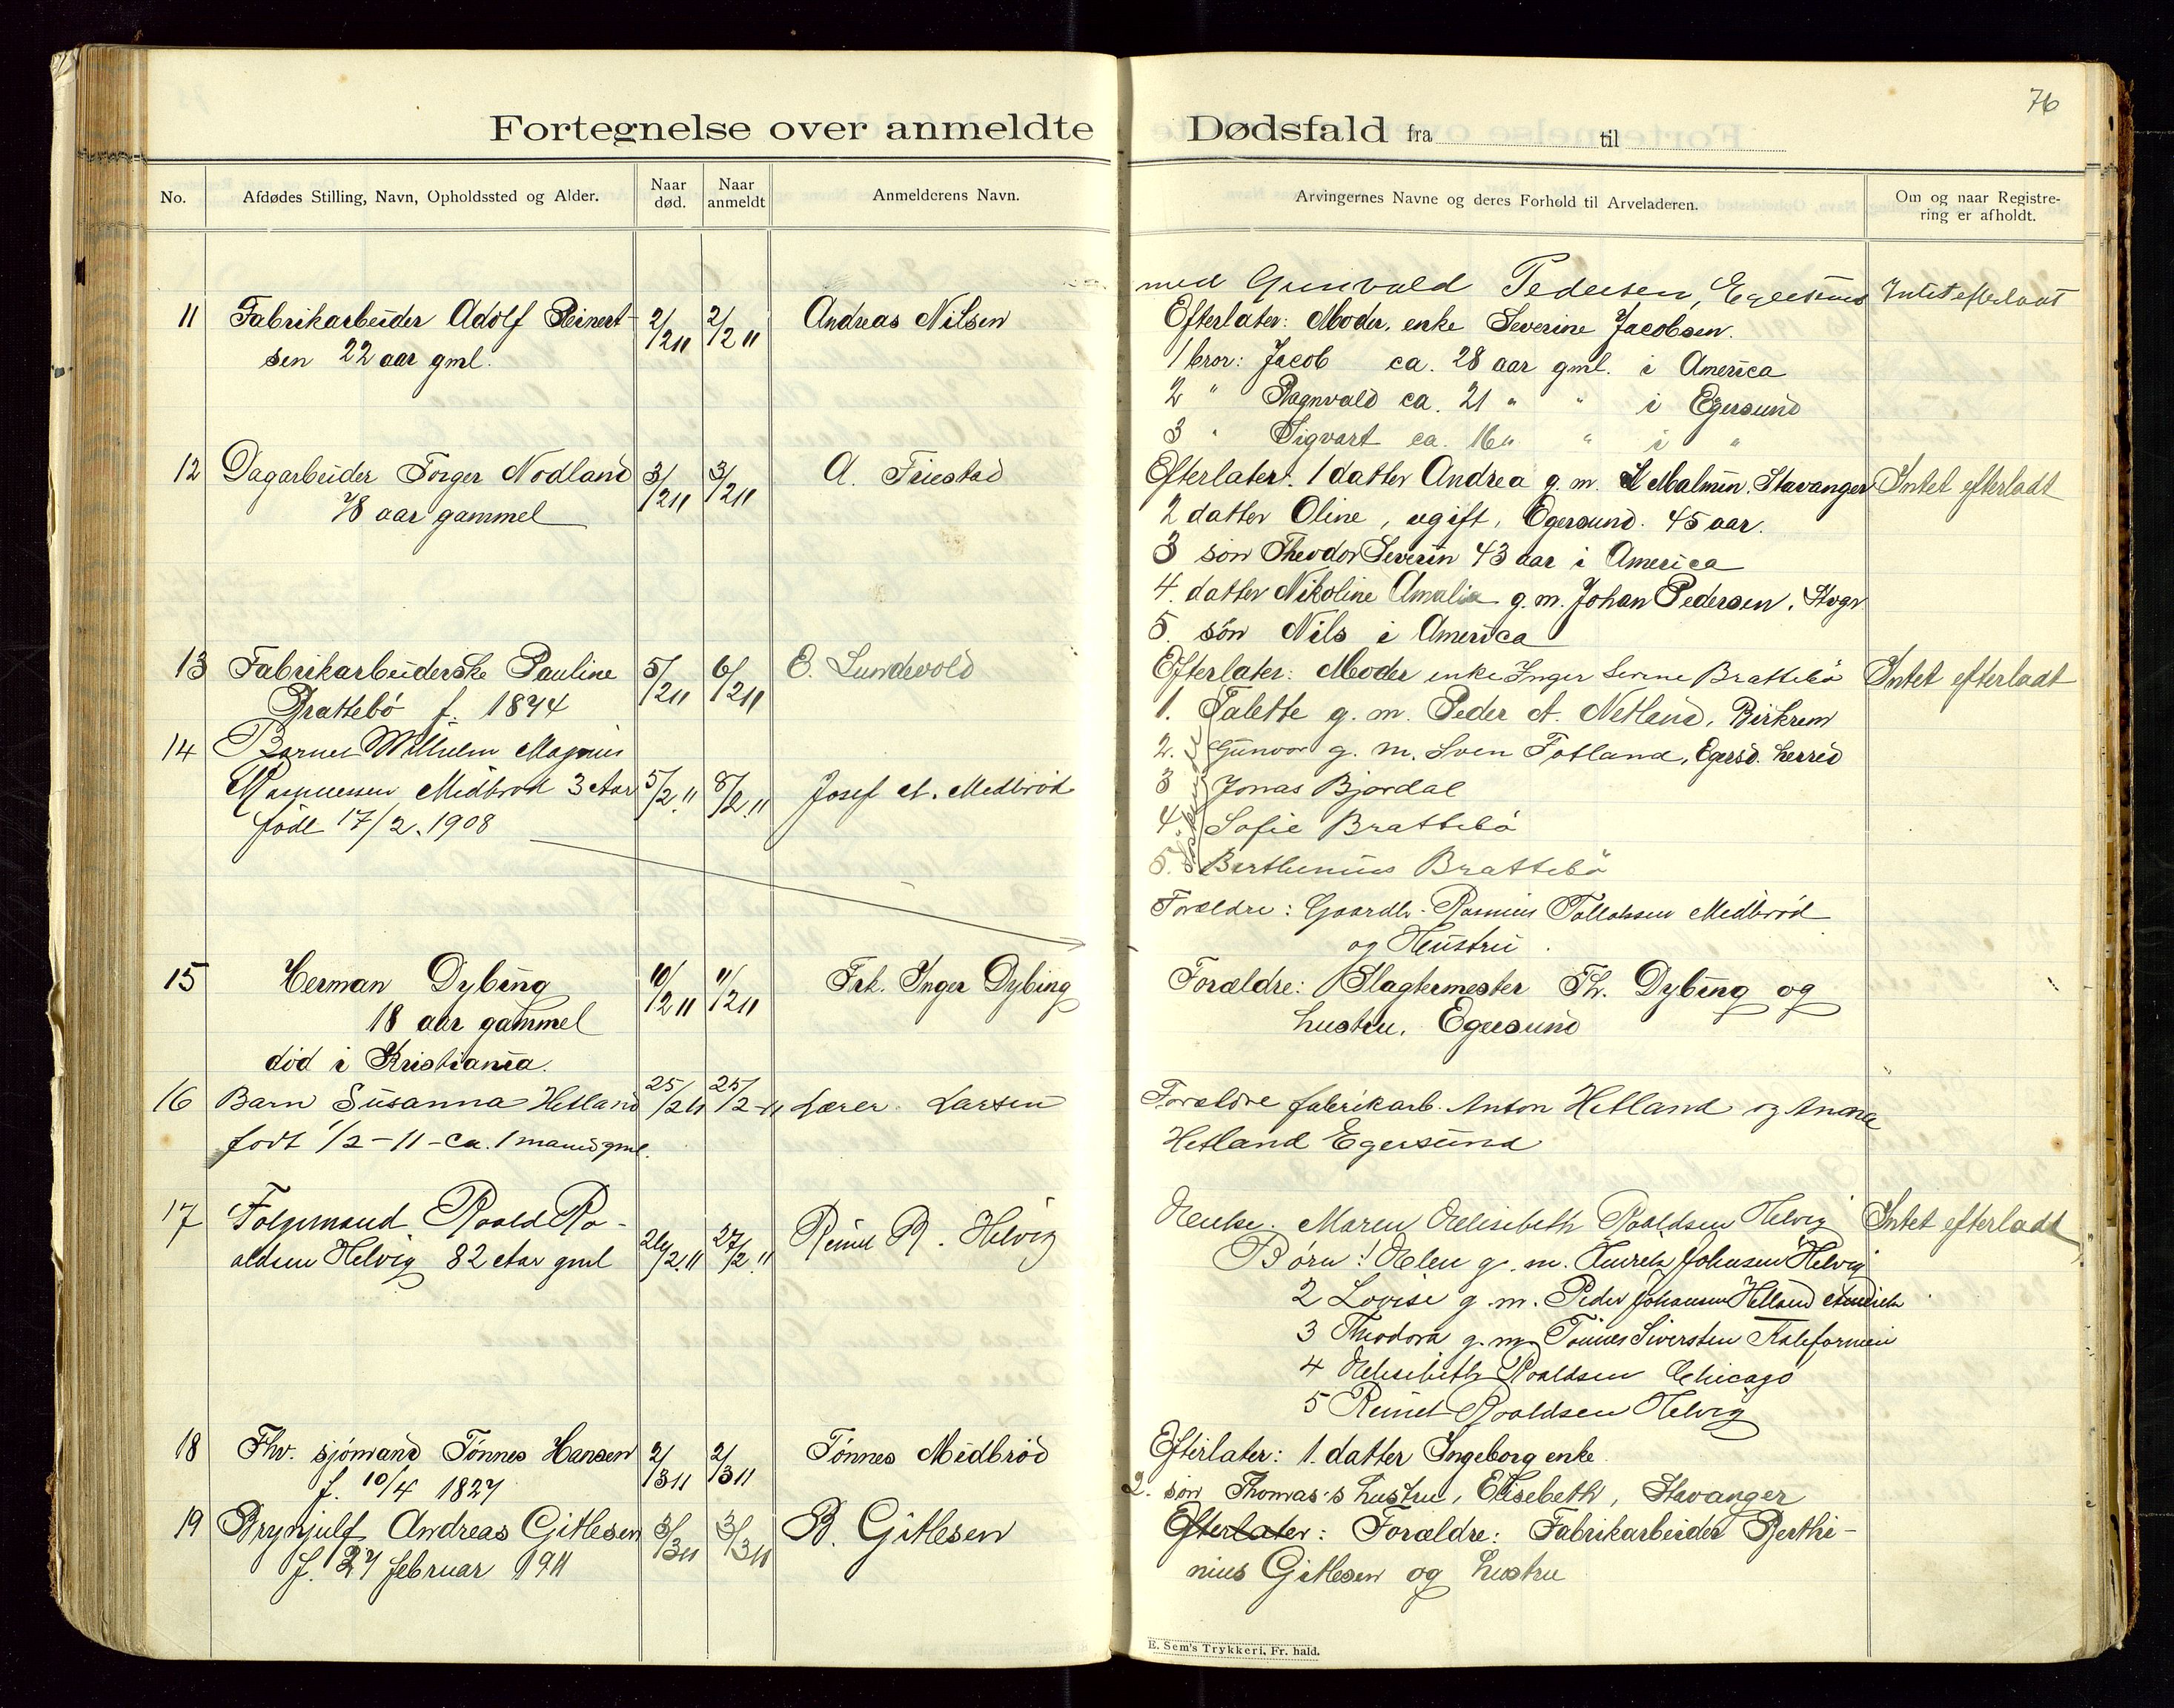 76
Fortegnelse over anmeldte Dødsfald fra til
No.
Afdødes Stilling, Navn, Opholdssted og Alder.
Naar død.
Naar anmeldt
Anmelderens Navn.
Arvingernes Navne og deres Forhold til Arveladeren.
Om og naar Registre-
ring er afholdt.
med Gunvald Pedersen, Egersund Intet efterladt
11 Fabrikarbeider Adolf Reinert- 2/2 11 2/2 11 Andreas Nilsen
sen 22 aar gml.
Efterlater: Moder, enke Severine Jacobsen.
1 bror: Jacob ca. 28 aar gml. i America
2 " Ragnvald ca. 21 " " i Egersund
3 " Sigvart ca. 16 " " i "
12 Dagarbeider Torger Nodland 3/2 11 3/2 11 A. Friestad
78 aar gammel
Efterlater: 1 datter Andrea g. m. Malmin, Stavanger Intet efterladt
2 datter Oline, ugift, Egersund. 45 aar.
3 søn Theodor Severin 43 aar i America
4. datter Nikoline Amalia g. m. Johan Pedersen, Stvgr
5. søn Nils i America
13 Fabrikarbeiderske Pauline 5/2 11 6/2 11 E. Lundevold
Brattebö f. 1874
Efterlater: Moder enke Inger Serine Brattebö Intet efterladt
1. Talette g. m. Peder A. Netland, Birkrem
2. Gunvor g. m. Sven Fotland, Egersd. herred
3 Jonas Bjordal
4 Sofie Brattebö
5. Berthinius Brattebö
14 Barnet Wilhelm Magnus
Rasmussen Midbrød 3 Aar 5/2 11 8/2 11 Josef A. Midbrød
född 17/2. 1908
Forældre: Gaardbr. Rasmus Tollaksen Midbrød
og Hustru
15 Herman Dybing 10/2 11 11/2 11 Frk. Inger Dybing
18 aar gammel
död i Kristiania.
Forældre: Slagtermester Th. Dybing og
hustru, Egersund
16 Barn Susanna Hetland 25/2 11 25/2-11 Lærer Larsen
født 1/2-11-ca. 1 maaned gml.
Forældre fabrikarb. Anton Hetland og Anna
Hetland Egersund
17 Folgemand Roald Ro-
aldsen Helvig 82 Aar gml 26/2. 11 27/2. 11 Reinert R. Helvig
Enke. Maren Elisebeth Roaldsen Helvig Intet efterladt
Børn: 1 Elen g. m. Henrik Johnsen Helvig
2 Lovise g. m. Peder Johansen Hetland
3 Theodora g. m. Tönnes Siversten Kaliformien
4 Elisebeth Roaldsen Chicago
5 Reinert Roaldsen Helvig
18 Fhv. sjömand Tönnes Hansen 2/3 11 2/3 11 Tönnes Midbröd
f. 10/4 1827
Efterlater: 1. datter Ingeborg enke.
2. søn Thomas's hustru, Elisebeth, Stavanger
19 Brynjulf Andreas Gitlesen 3/3 11 3/3 11 B. Gitlesen
f. 27 februar 1911
Efterlater: Forældre: Fabrikarbeider Berthi-
nius Gitlesen og hustru
E. Sem's Trykkeri, Fr. hald.